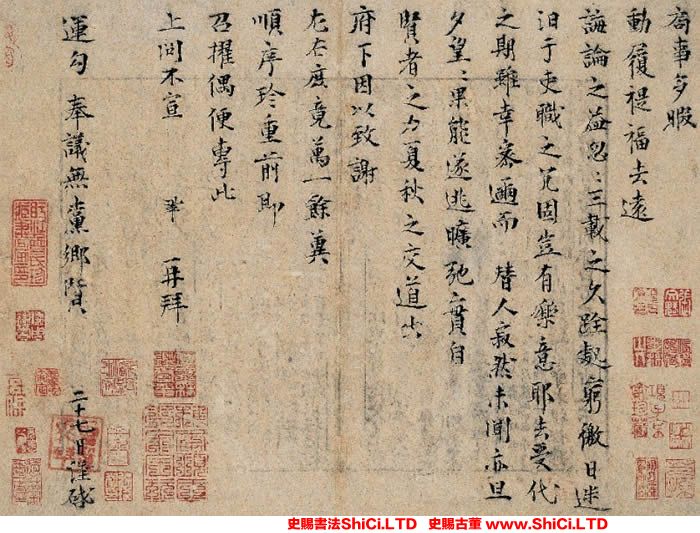 局事多暇
動履禔福去遠
誨論之益忽〻三載之久跧處窮徼日迷
汩于吏職之冗固豈有樂意耶去受代
之期難幸密邇而替人寂然未聞亦旦
夕望〻果能遂逃曠弛實自
賢者之力夏秋之交道出
府下因以致謝
左右庶竟萬一餘冀
順序珍重前即
召擢偶便專此
上問不宣 鞏 再拜
運勾 奉議無黨鄉賢 二十七日謹啟
史賜書法ShiCi.LTD 史賜古董 www.ShiCi.LTD